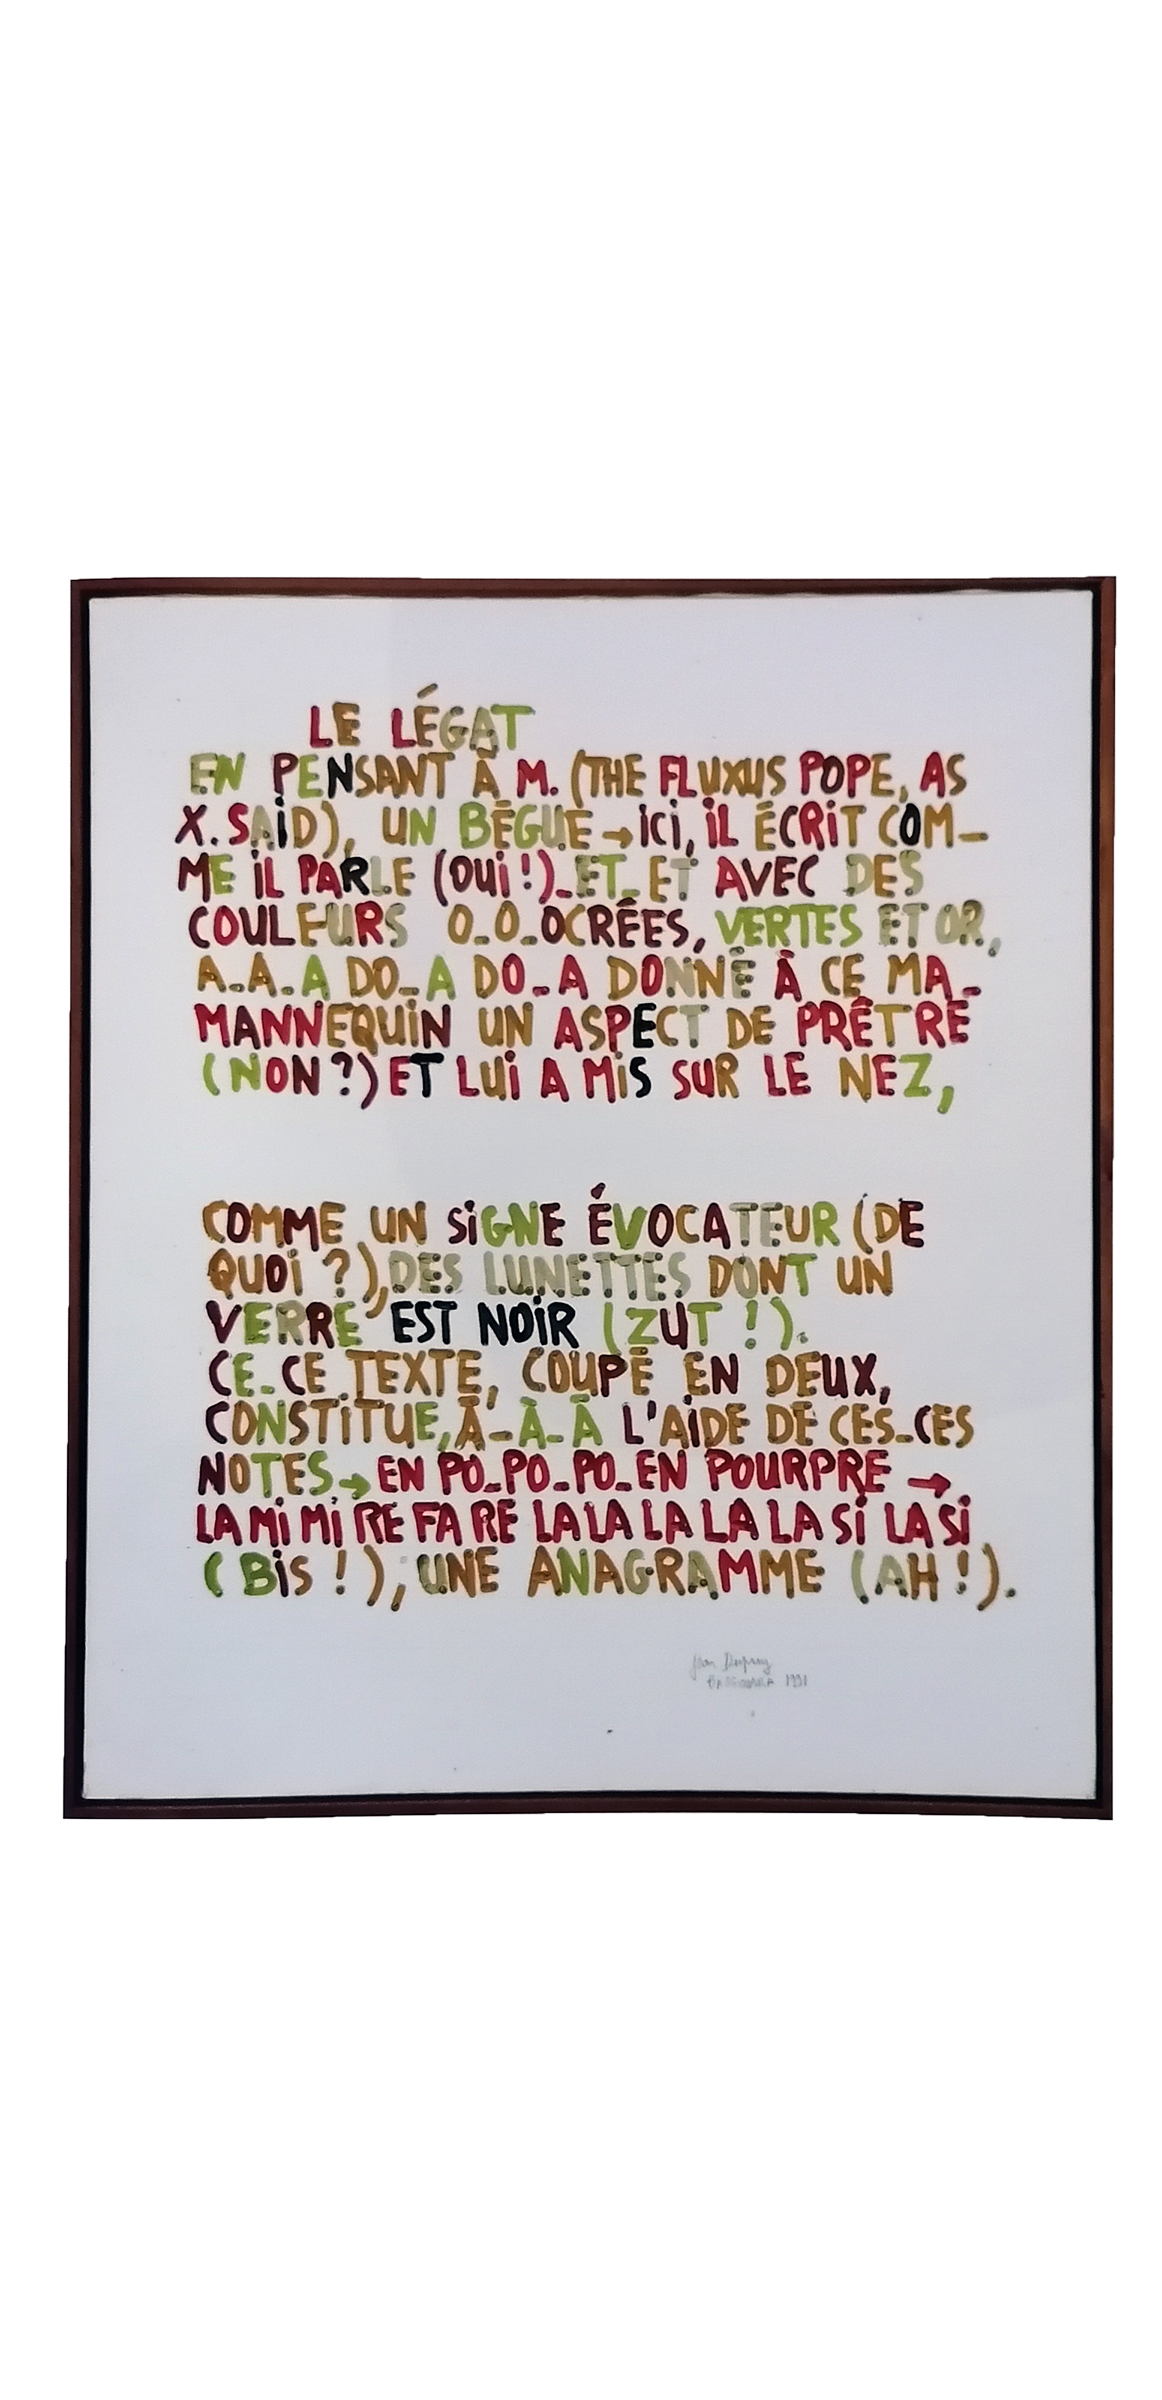 LE LÉGAT
EN PENSANT À M. (THE FLUXUS POPE, AS
X. SAID), UN BÈGUE → ICI, IL ÉCRIT COM-
ME IL PARLE (OUI !)_ET_ET AVEC DES
COULEURS O_O_OCRÉES, VERTES ET OR,
A_A_A DO_A DO_A DONNÉ À CE MA_
MANNEQUIN UN ASPECT DE PRÊTRE
(NON ?) ET LUI A MIS SUR LE NEZ,
COMME UN SIGNE ÉVOCATEUR (DE
QUOI ?), DES LUNETTES DONT UN
VERRE EST NOIR (ZUT !).
CE_CE TEXTE, COUPÉ EN DEUX,
CONSTITUE, À_À_À L'AIDE DE CES_CES
NOTES → EN PO_PO_PO_EN POURPRE →
LA MI MI RE FA RE LA LA LA LA LA SI LA SI
(BIS !), UNE ANAGRAMME (AH !).
Jean Dupuy
1991